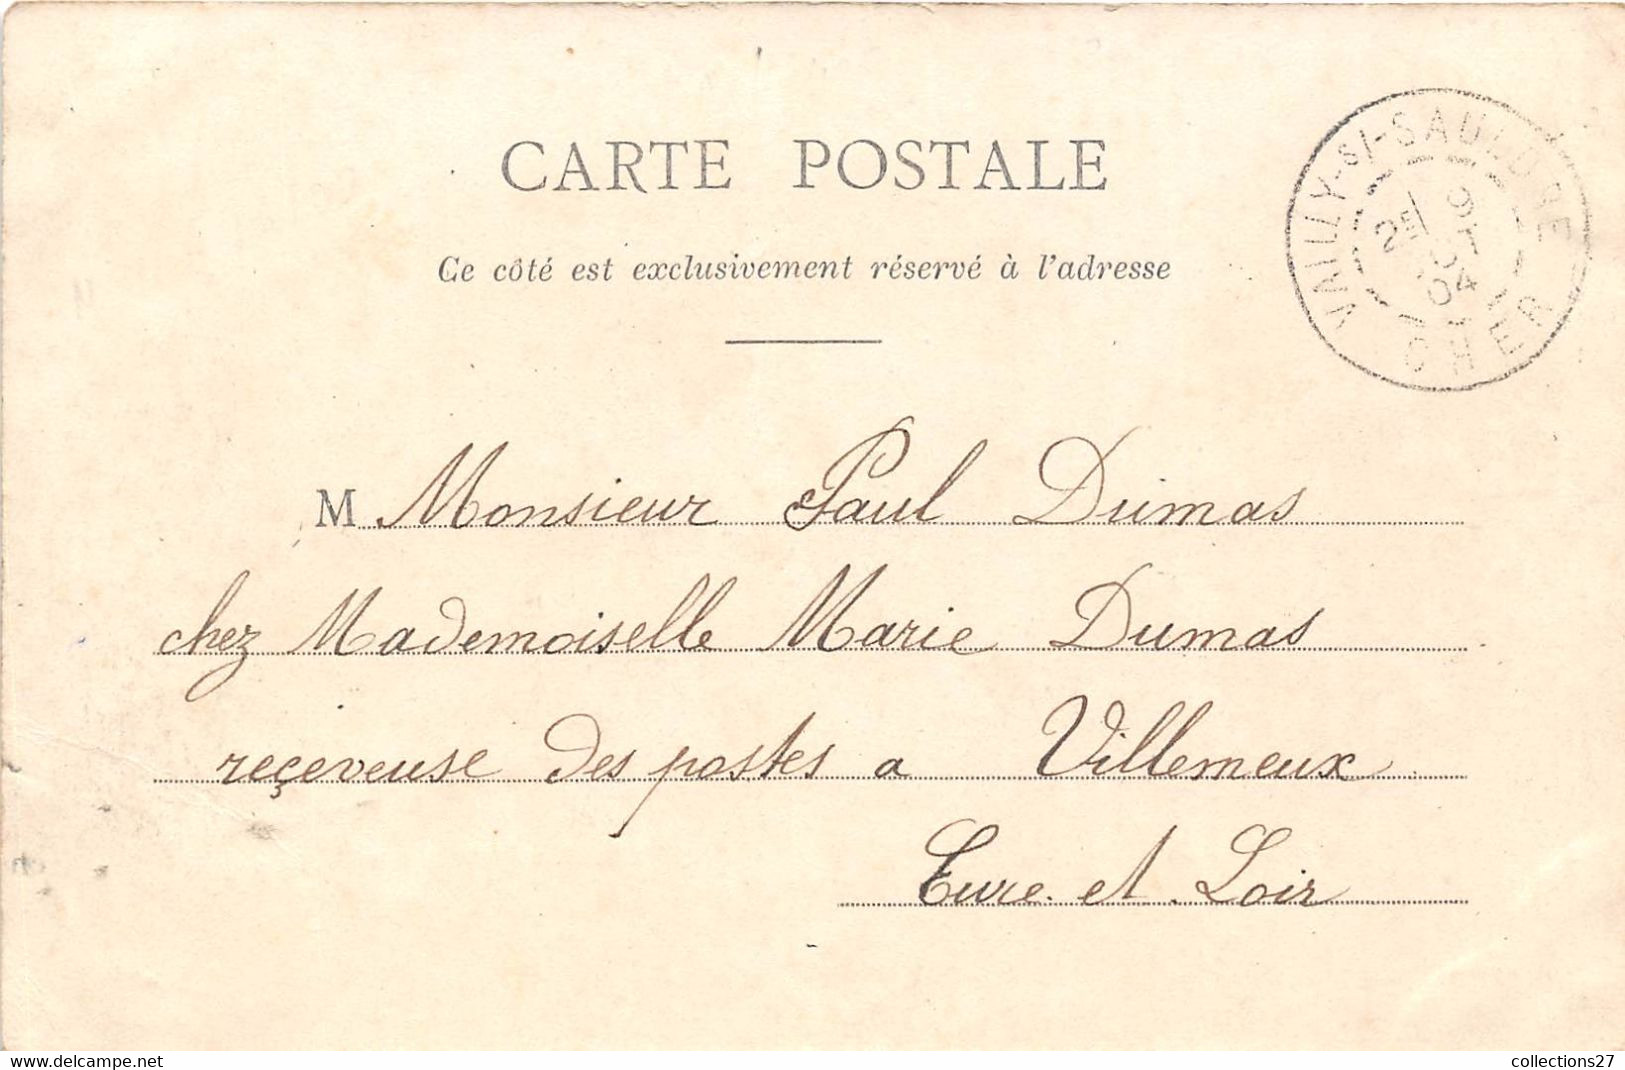 CARTE POSTALE
Ce côté est exclusivement réservé à l'adresse
VAILLY-S/-SAULDRE
2E 9
04
CHER
M Monsieur Paul Dumas
chez Mademoiselle Marie Dumas
reçeveuse des postes a Villemeux
Eure et Loir
www.delcampe.net
collections27